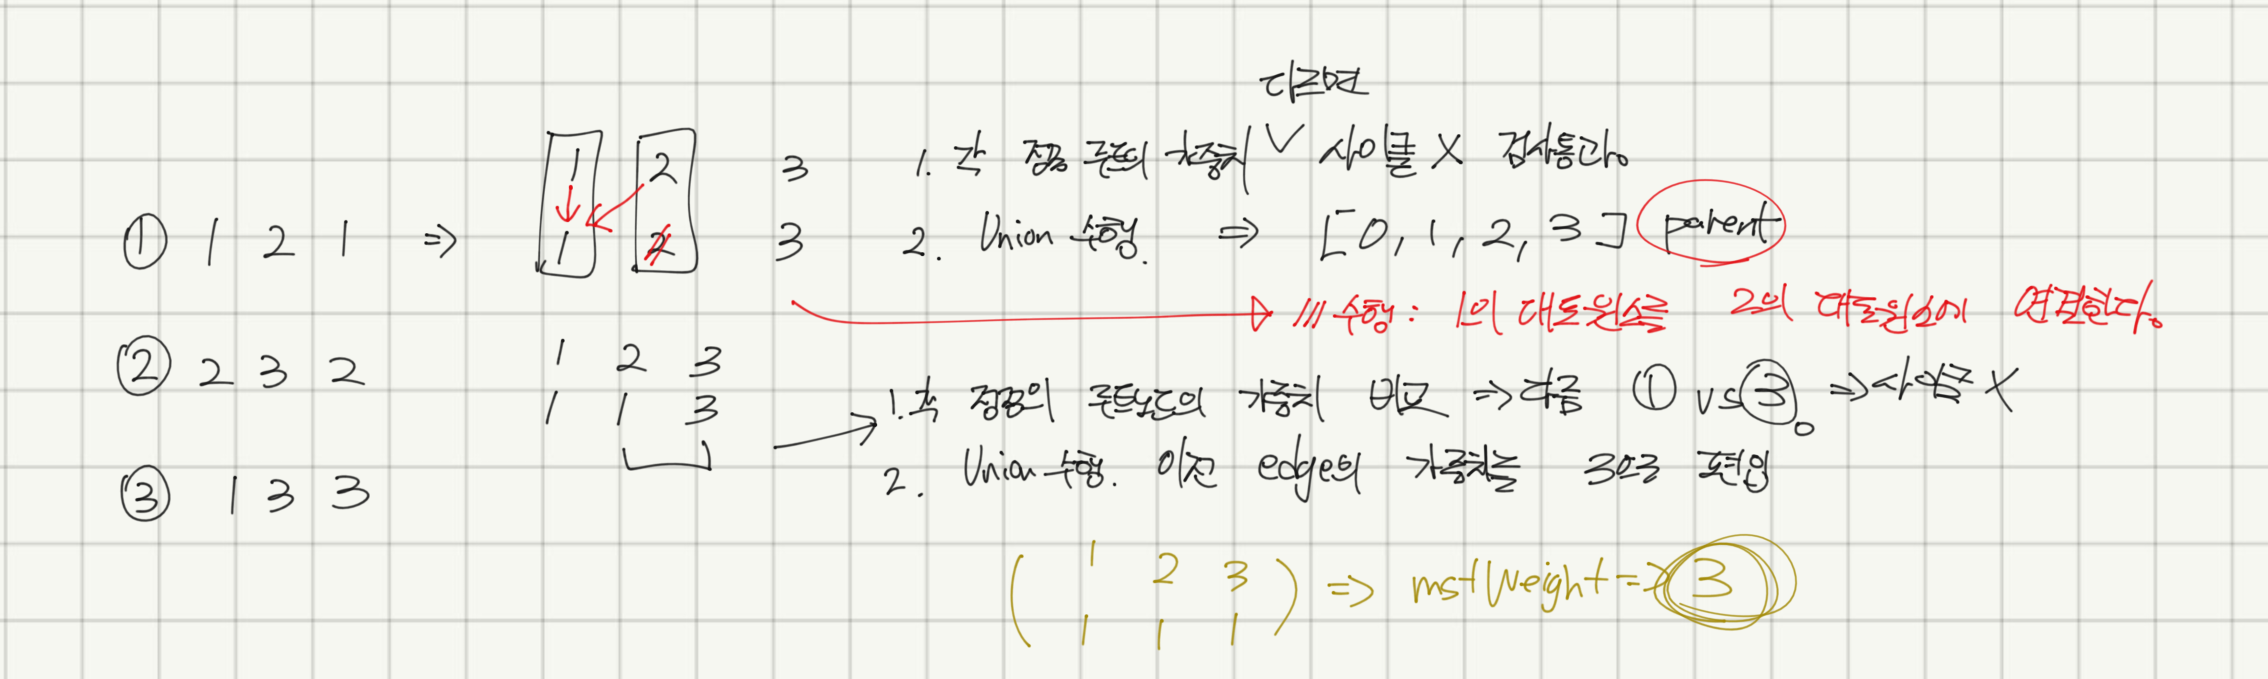 다르면
1 2 3 1. 각 정점 루트의 가중치 ∨ 사이클 X 검사통과.
① 1 2 1 ⇒ 1 2 3 2. Union 수행. ⇒ [0, 1, 2, 3] parent
수행 : 1의 대표원소를 2의 대표원소에 연결한다.
② 2 3 2 1 2 3
1 1 3 1. 각 정점의 루트노드의 가중치 비교 ⇒ 다름 ① vs ③. ⇒ 사이클 X
③ 1 3 3 2. Union 수행. 이전 edge의 가중치는 3으로 편입
( 1 2 3 ) ⇒ mstWeight ⇒ 3
1 1 1